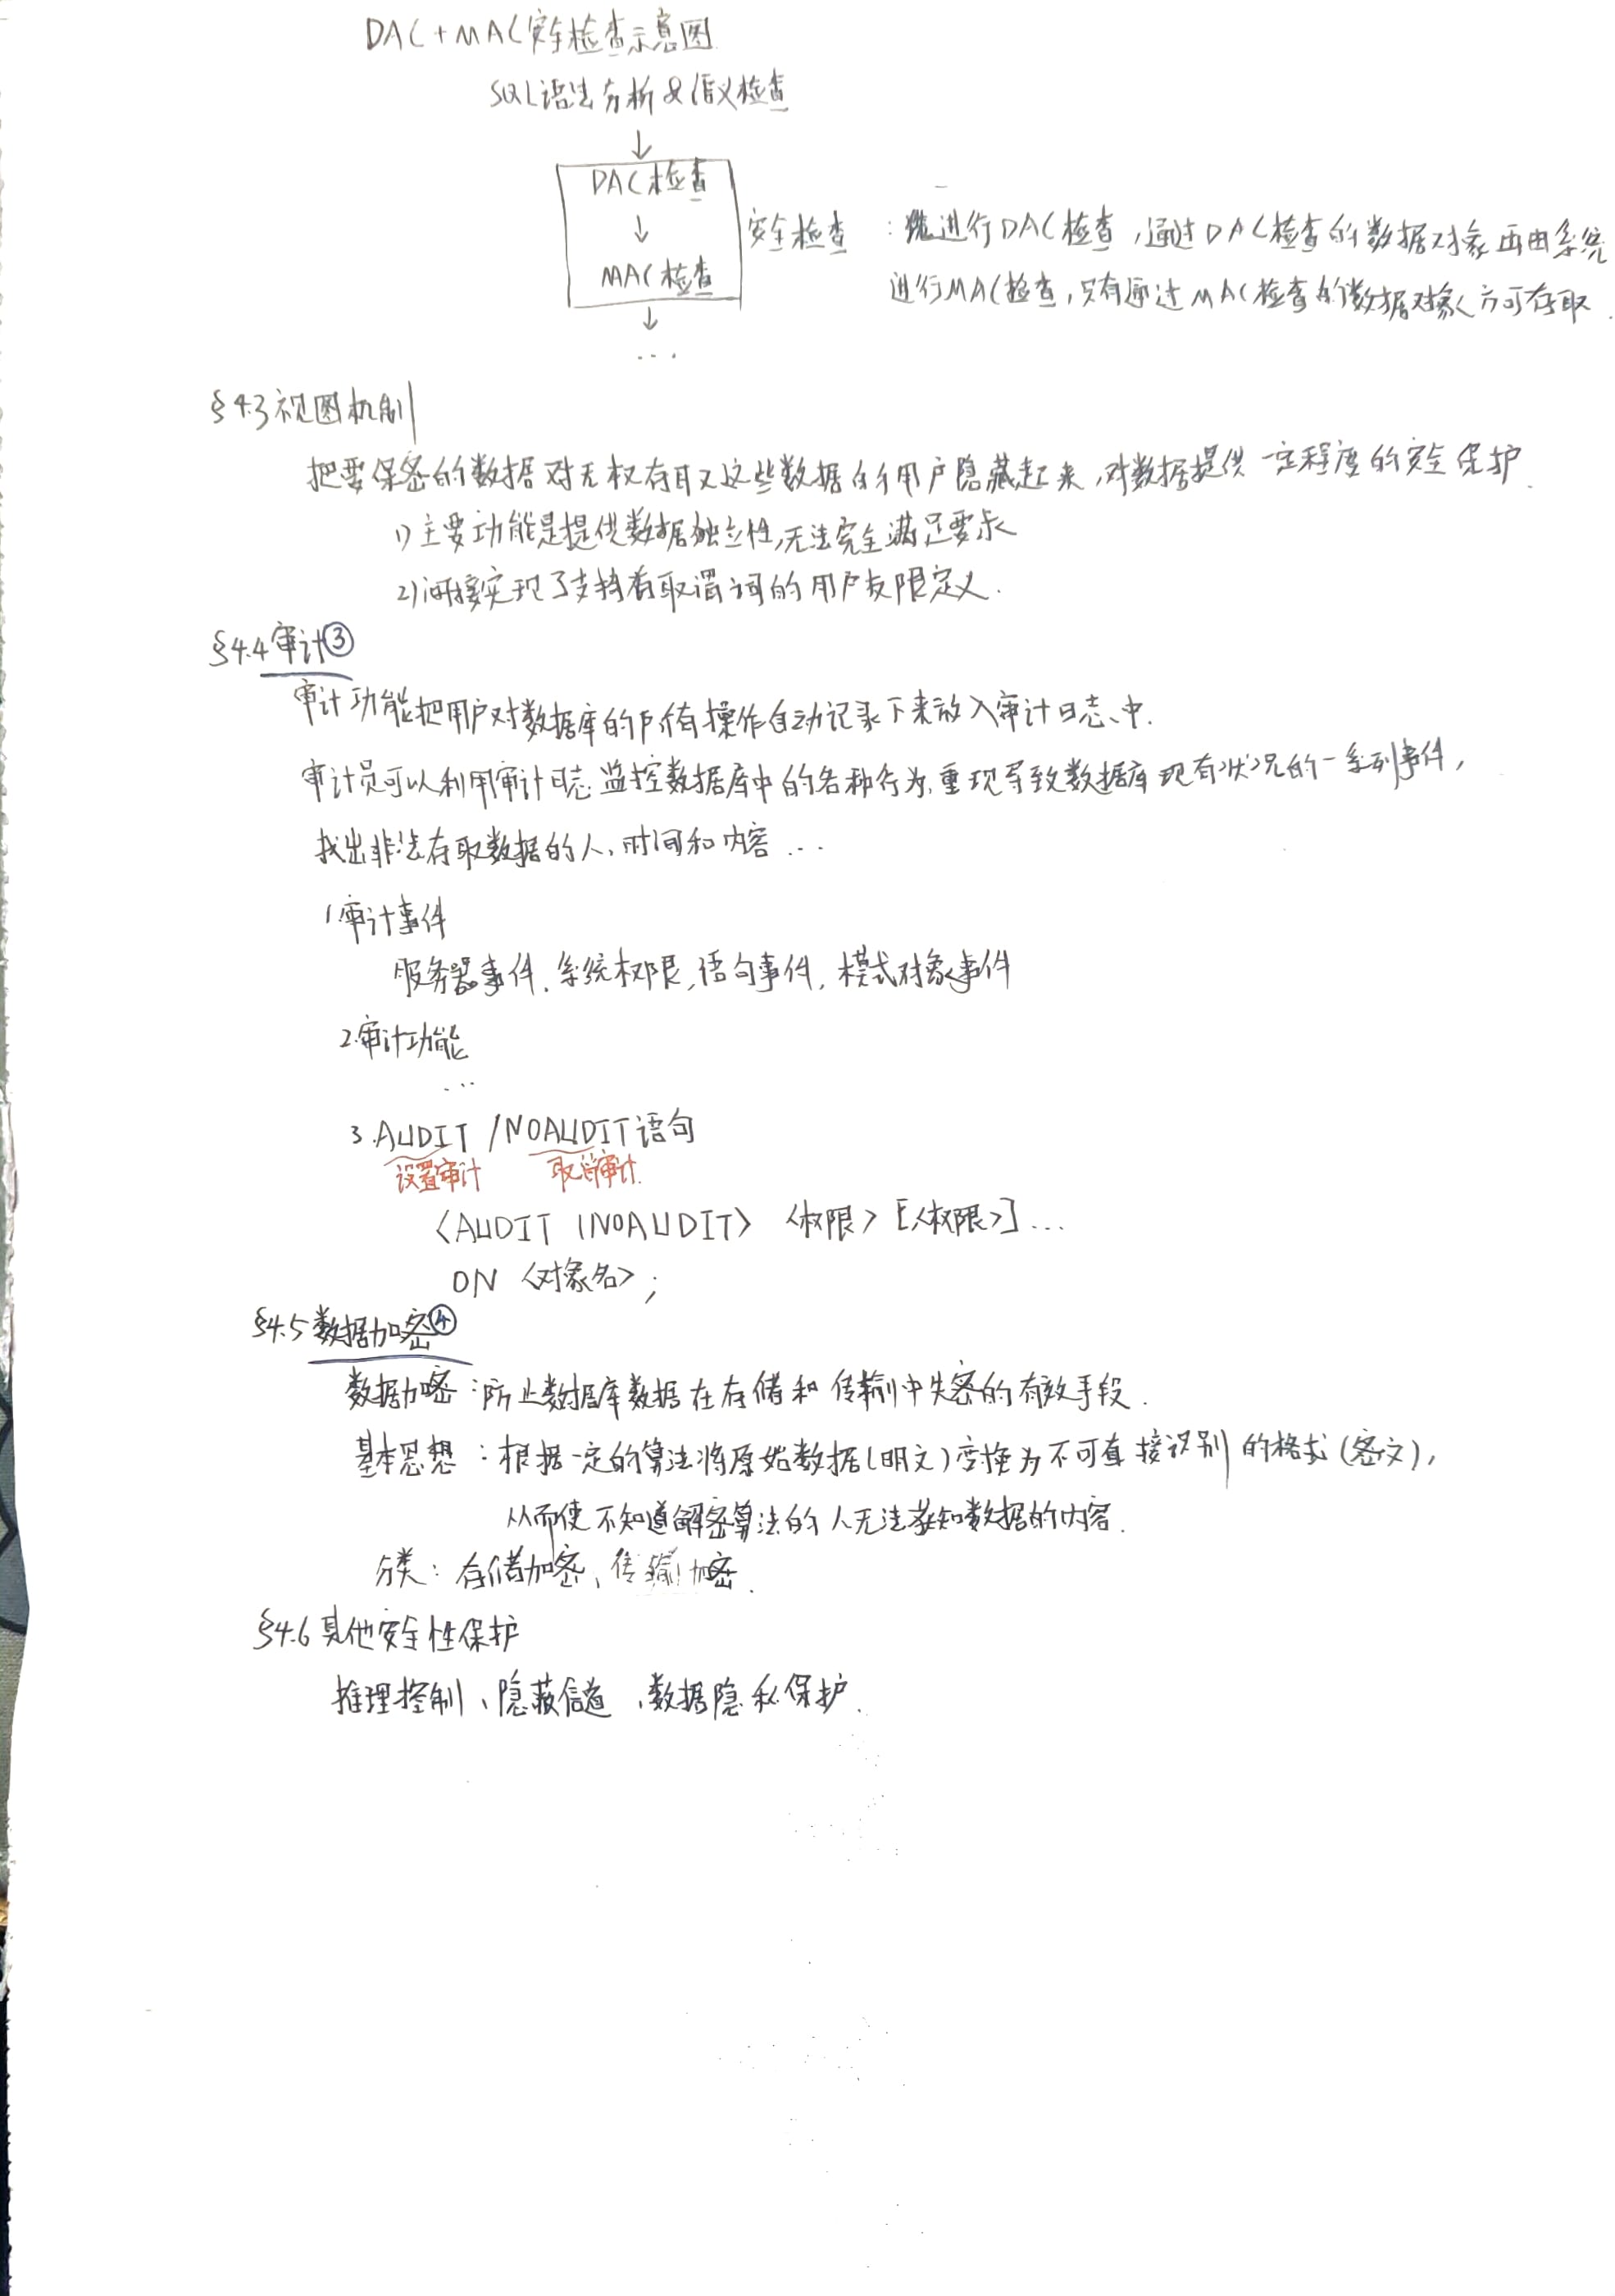 DAC+MAC安全检查示意图
SQL语法分析&语义检查
↓
DAC检查
↓
MAC检查
↓
...
安全检查 : 先进行DAC检查,通过DAC检查的数据对象再由系统
进行MAC检查,只有通过MAC检查的数据对象方可存取.
§4.3视图机制
把要保密的数据对无权存取这些数据的用户隐藏起来,对数据提供一定程度的安全保护.
1)主要功能是提供数据独立性,无法完全满足要求
2)间接实现了支持存取谓词的用户权限定义.
§4.4审计③
审计功能把用户对数据库的所有操作自动记录下来放入审计日志中.
审计员可以利用审计日志监控数据库中的各种行为,重现导致数据库现有状况的一系列事件,
找出非法存取数据的人、时间和内容...
1.审计事件
服务器事件、系统权限,语句事件,模式对象事件
2.审计功能
...
3.AUDIT/NOAUDIT语句
设置审计 取消审计.
<AUDIT|NOAUDIT> <权限>[<权限>]...
ON <对象名>;
§4.5数据加密④
数据加密:防止数据库数据在存储和传输中失密的有效手段.
基本思想:根据一定的算法将原始数据(明文)变换为不可直接识别的格式(密文),
从而使不知道解密算法的人无法获知数据的内容.
分类:存储加密、传输加密.
§4.6其他安全性保护
推理控制、隐蔽信道、数据隐私保护.